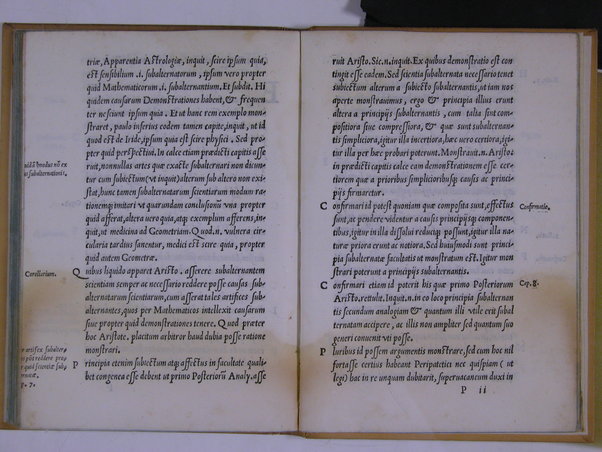 triæ, Apparentia Astrologiæ, inquit, scire ipsum quia,
est sensibilium .i. subalternatorum, ipsum vero propter
quid Mathematicorum .i. subalternantium. Et subda. Hi
quidem causarum Demonstrationes habent, & frequen
ter nesciunt ipsum quia. Et at hanc rem exemplo mon-
straret, paulo inferius eodem tamen capite, inquit, ut id
quod est de Iride, ipsum quia est scire physici. Sed pro-
pter quid perspectiui. In calce etiam prædicti capitis asse
ruit, nonnullas artes quæ exacte subalternari non dicun-
tur cum subiectum (vt inquit) alterum sub altero non exi-
stat, hunc tamen subalternatarum scientiarum modum ra-
tionemque imitari vt quarundam conclusionum una propter
quid afferat, altera vero quia, atque exemplum afferens, in-
quit, ut medicina ad Geometriam. Quod .n. vulnera cir-
cularia tardius sanentur, medici est scire quia, propter
quid autem Geometræ.
Quibus liquido apparet Aristo. asserere subalternantem
scientiam semper ac necessario reddere posse causas sub-
alternatarum scientiarum, cum asserat tales artifices sub-
alternantes, quos per Mathematicos intellexit causarum
siue propter quid demonstrationes tenere. Quod præter
hoc Aristote. placitum arbitror haud dubia posse ratione
monstrari.
Principia etenim subiectum atque affectus in facultate quali-
bet congenea esse debent ut primo Posteriorum Analy. asse
modus non ex
subalternationis,
Corollarium.
artifex subalter,
reddere pro,
quid scientiæ sub,
p. 7.
ruit Aristo. Sic .n. inquit. Ex quibus demonstratio est con
tingit esse eadem. Sed scientia subalternata necessario tenet
subiectum alterum a subiecto subalternantis, ut iam nos
aperte monstrauimus, ergo & principia illius erunt
altera a principijs subalternantis, cum talia sint com-
positiora siue compressiora, & quæ sunt subalternan-
tis simpliciora, igitur illa incertiora, hæc vero certiora, igi-
tur illa per hæc probari poterunt. Monstrauit .n. Aristo.
in calce prædicti capitis eam demonstrationem esse cer-
tiorem quæ a prioribus simplicioribusque causis ac princi-
pijs firmaretur.
Confirmari id potest quoniam quæ composita sunt, effectus
sunt, ac pendere videntur a causis principijsque componen-
tibus, igitur in illa dissolui reducique possunt, igitur illa na-
turæ priora erunt ac notiora, Sed huiusmodi sunt princi-
pia subalternatæ facultatis ut monstratum est. Igitur mon
strari poterunt a principijs subalternantis.
Confirmari etiam id poterit his quæ primo Posteriorum
Aristo. rettulit. Inquit .n. in co loco principia subalternan
tis secundum analogiam & quantum illi vtile erit subal
ternatam accipere, ac illis non ampliter sed quantum suo
generi conuenit vti posse.
Pluribus id possem argumentis monstrare, sed cum hoc nil
fortasse certius habeant Peripatetici nec quispiam (ut
legi) hac in re unquam dubitarit, superuacaneum duxi in
P ii
Confirmatio.
Cap. 8.